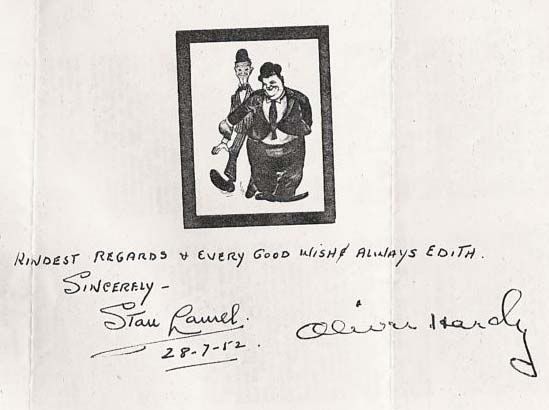 KINDEST REGARDS & EVERY GOOD WISH ALWAYS EDITH.
SINCERELY -
Stan Laurel.
28-7-52.
Oliver Hardy